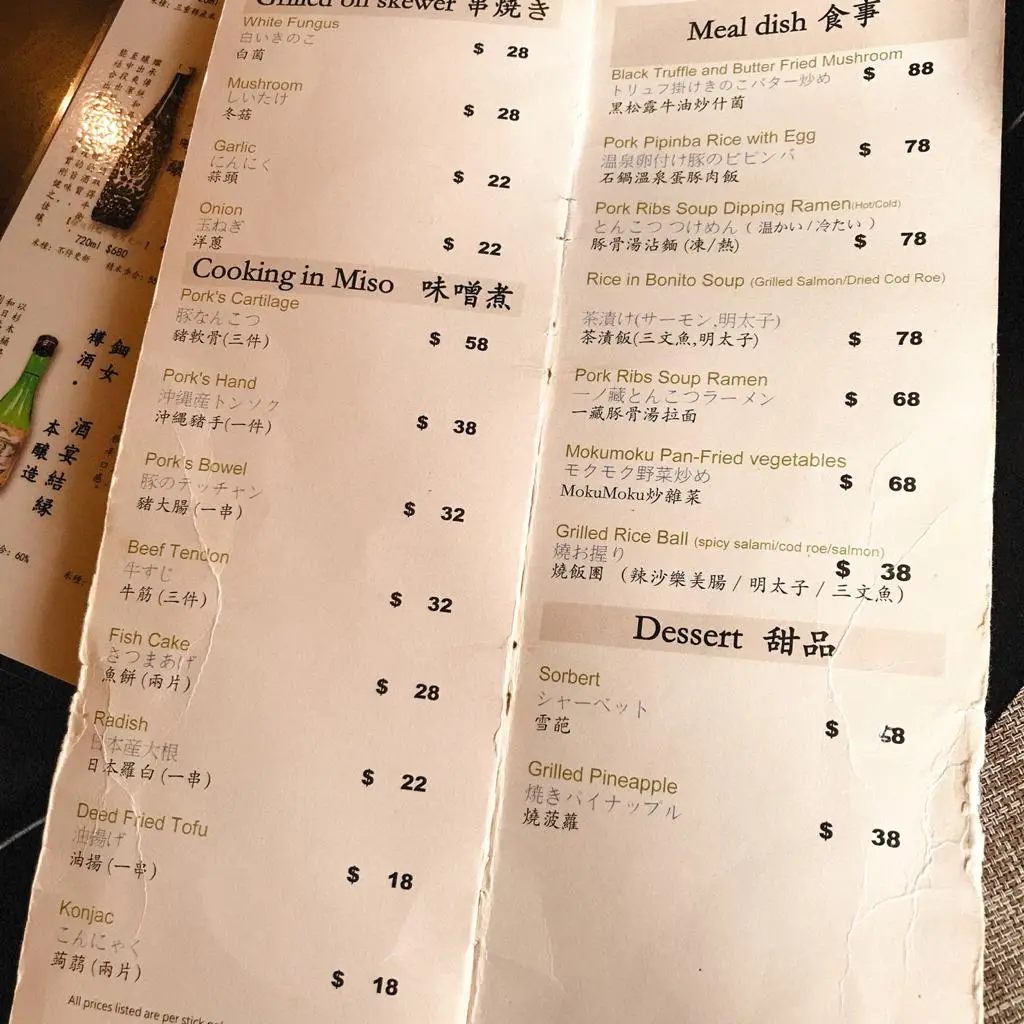 Grilled on skewer 串焼き
White Fungus
白いきのこ
白菌
$ 28
Mushroom
しいたけ
冬菇
$ 28
Garlic
にんにく
蒜頭
$ 22
Onion
玉ねぎ
洋蔥
$ 22
Cooking in Miso 味噌煮
Pork's Cartilage
豚なんこつ
豬軟骨(三件)
$ 58
Pork's Hand
沖縄産トンソク
沖繩豬手(一件)
$ 38
Pork's Bowel
豚のテッチャン
豬大腸(一串)
$ 32
Beef Tendon
牛すじ
牛筋(三件)
$ 32
Fish Cake
さつまあげ
魚餅(兩片)
$ 28
Radish
日本産大根
日本羅白(一串)
$ 22
Deed Fried Tofu
油揚げ
油揚(一串)
$ 18
Konjac
こんにゃく
蒟蒻(兩片)
$ 18
All prices listed are per stick
Meal dish 食事
Black Truffle and Butter Fried Mushroom
トリュフ掛けきのこバター炒め
黑松露牛油炒什菌
$ 88
Pork Pipinba Rice with Egg
温泉卵付け豚のビビンバ
石鍋溫泉蛋豚肉飯
$ 78
Pork Ribs Soup Dipping Ramen(Hot/Cold)
とんこつ つけめん ( 温かい / 冷たい )
豚骨湯沾麵 (凍/熱)
$ 78
Rice in Bonito Soup (Grilled Salmon/Dried Cod Roe)
茶漬け(サーモン,明太子)
茶漬飯(三文魚,明太子)
$ 78
Pork Ribs Soup Ramen
一ノ蔵とんこつラーメン
一藏豚骨湯拉面
$ 68
Mokumoku Pan-Fried vegetables
モクモク野菜炒め
MokuMoku炒雜菜
$ 68
Grilled Rice Ball (spicy salami/cod roe/salmon)
燒お握り
燒飯團 (辣沙樂美腸 / 明太子 / 三文魚)
$ 38
Dessert 甜品
Sorbert
シャーベット
雪葩
$ 58
Grilled Pineapple
焼きパイナップル
燒菠蘿
$ 38
720ml $680
酒宴結縁
本釀造